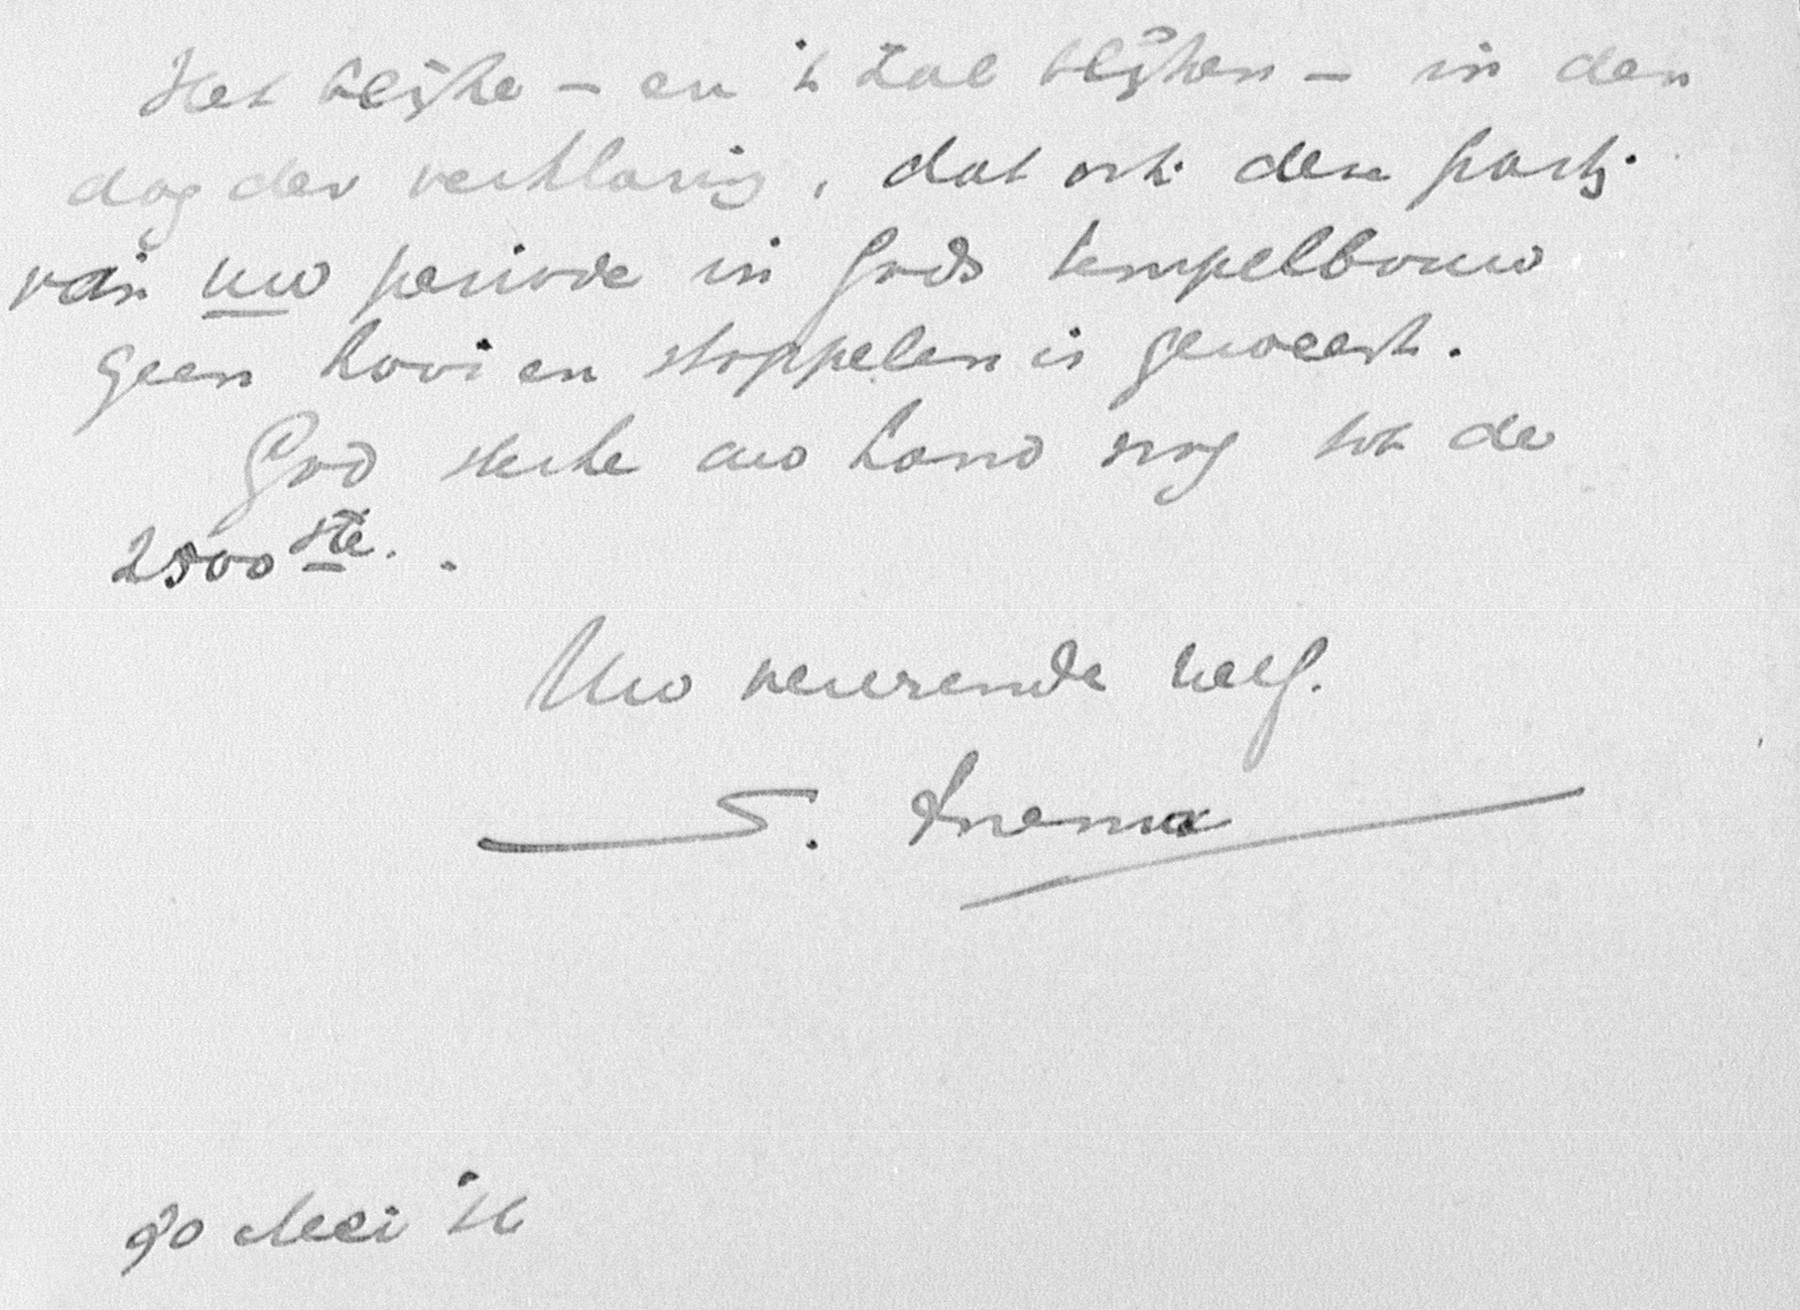 Het blijke – en 't zal blijken – in den
dag der verklaring, dat ook deze
van uw periode in Gods tempelbouw
geen hooi en stoppelen is geweest.
God sterke uw hand nog tot de
2500ste.
Uw vererende
S.
Mei